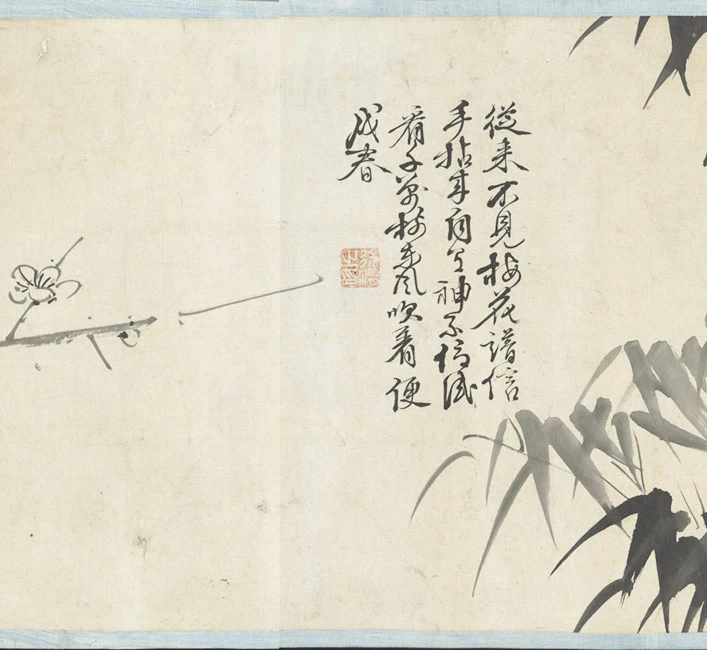 從来不見梅花譜信
手拈来自有神不信試
看千萬樹東風吹着便
成春